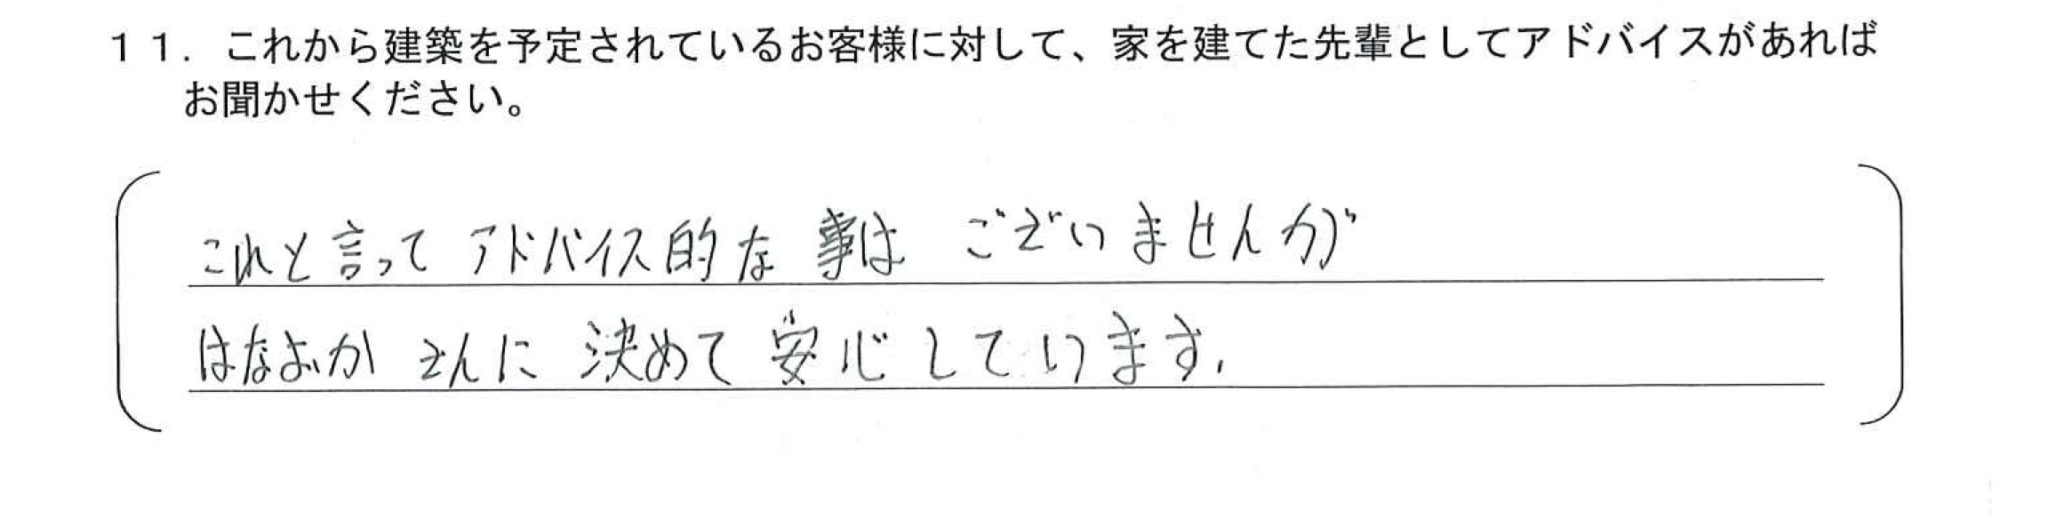 １１．これから建築を予定されているお客様に対して、家を建てた先輩としてアドバイスがあれば
お聞かせください。
これと言ってアドバイス的な事は ございませんが
はなおか さんに 決めて安心しています.